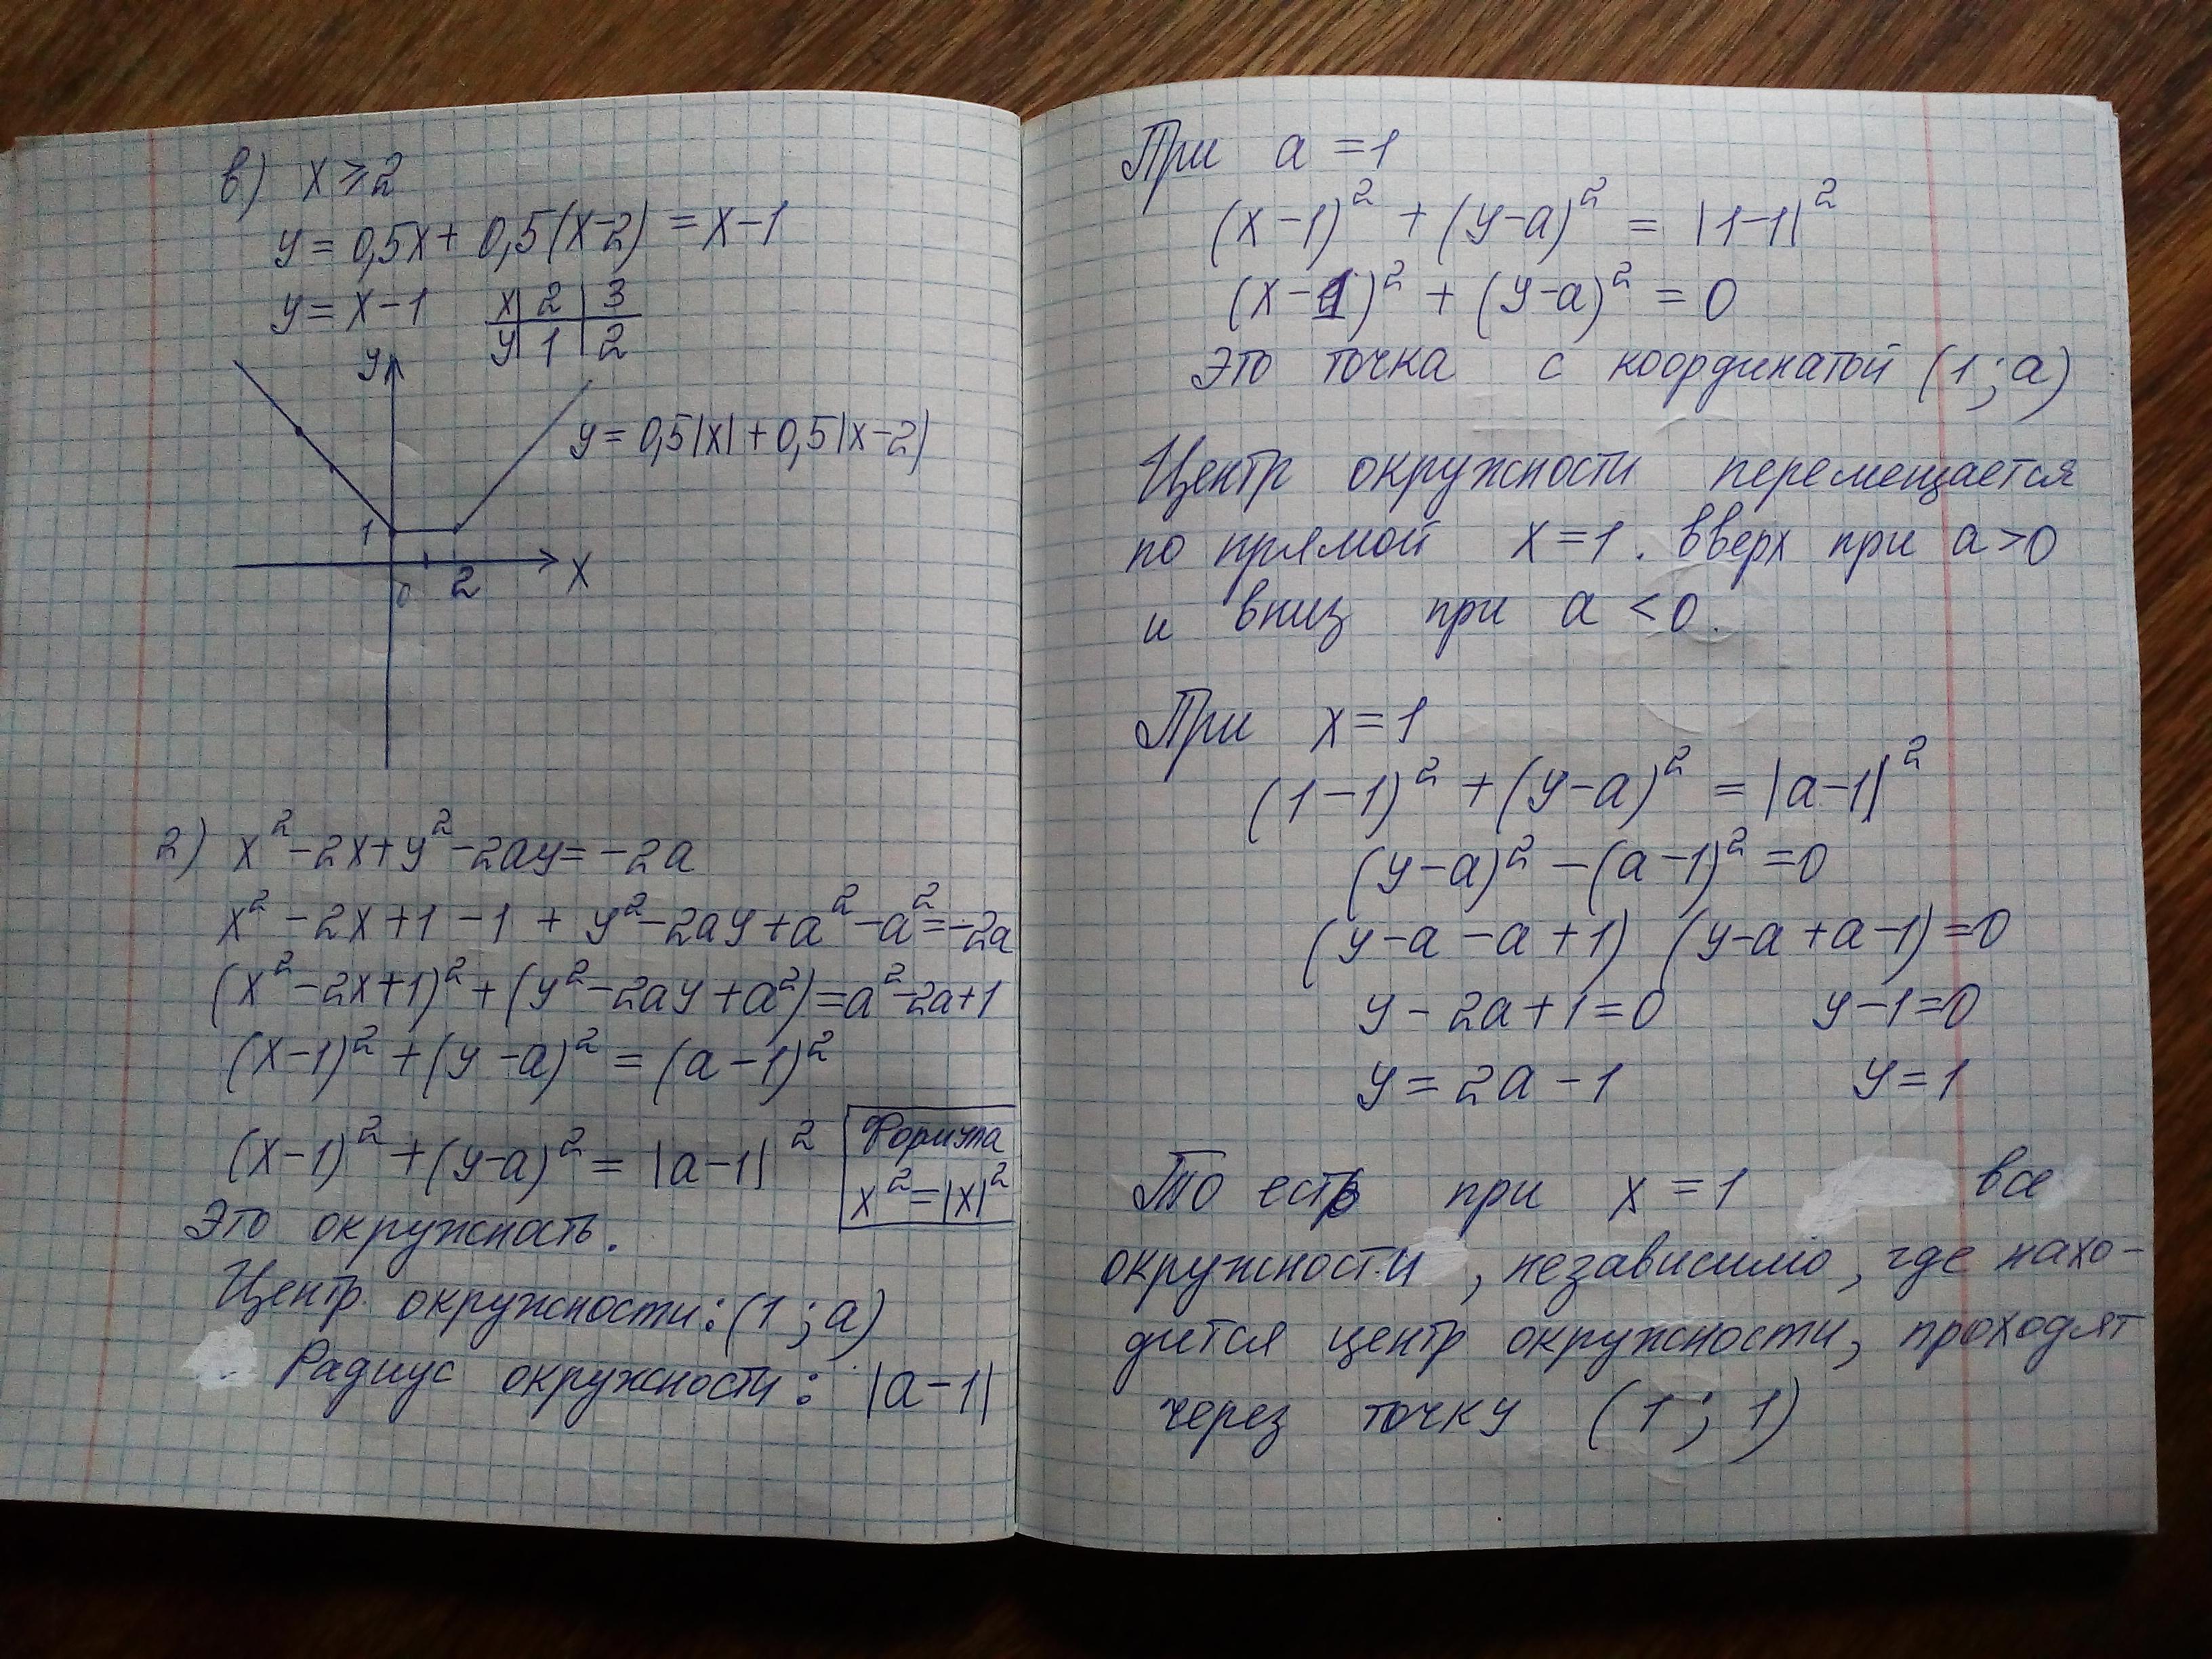 в) x ⩾ 2
y = 0,5x + 0,5(x-2) = x-1
y = x-1
x | 2 | 3
y | 1 | 2
y
y = 0,5|x| + 0,5|x-2|
1
0 2 x
2) x² - 2x + y² - 2ay = -2a
x² - 2x + 1 - 1 + y² - 2ay + a² - a² = -2a
(x² - 2x + 1)² + (y² - 2ay + a²) = a² - 2a + 1
(x-1)² + (y-a)² = (a-1)²
(x-1)² + (y-a)² = |a-1|²
Формула
x² = |x|²
Это окружность.
Центр окружности: (1; a)
Радиус окружности: |a-1|
При a = 1
(x-1)² + (y-a)² = |1-1|²
(x-1)² + (y-a)² = 0
Это точка с координатой (1; a)
Центр окружности перемещается
по прямой x = 1. вверх при a > 0
и вниз при a < 0.
При x = 1
(1-1)² + (y-a)² = |a-1|²
(y-a)² - (a-1)² = 0
(y-a-a+1) (y-a+a-1) = 0
y - 2a + 1 = 0 y - 1 = 0
y = 2a - 1 y = 1
То есть при x = 1 все
окружности, независимо, где нахо-
дится центр окружности, проходят
через точку (1; 1)